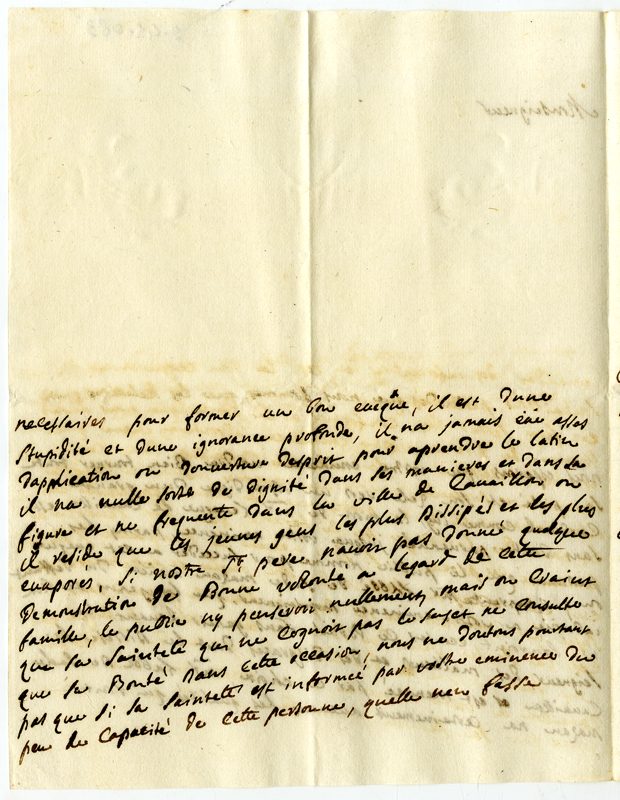 necessaires pour former un bon eveque, il est dune
stupidité et dune ignorance profonde, il na jamais eüe asses
dapplication ou douverture desprit pour aprendre le latin
il na nulle sorte de dignité dans ses manieres et dans sa
figure et ne frequente dans la ville de Cavaillon ou
il reside que les jeunes gens les plus dissipés et les plus
evaporés, si nostre St pere navoit pas donné quelque
demonstration de bonne volonté a legard de cette
famille, le public ny penseroit nullement, mais on craint
que sa Sainteté qui ne cognoit pas le sujet ne consulte
que sa bonté dans cette occasion, nous ne doutons pourtant
pas que si sa Sainteté est informeé par vostre eminence du
peu de capacité de cette personne, quelle nen fasse
Monseigneur